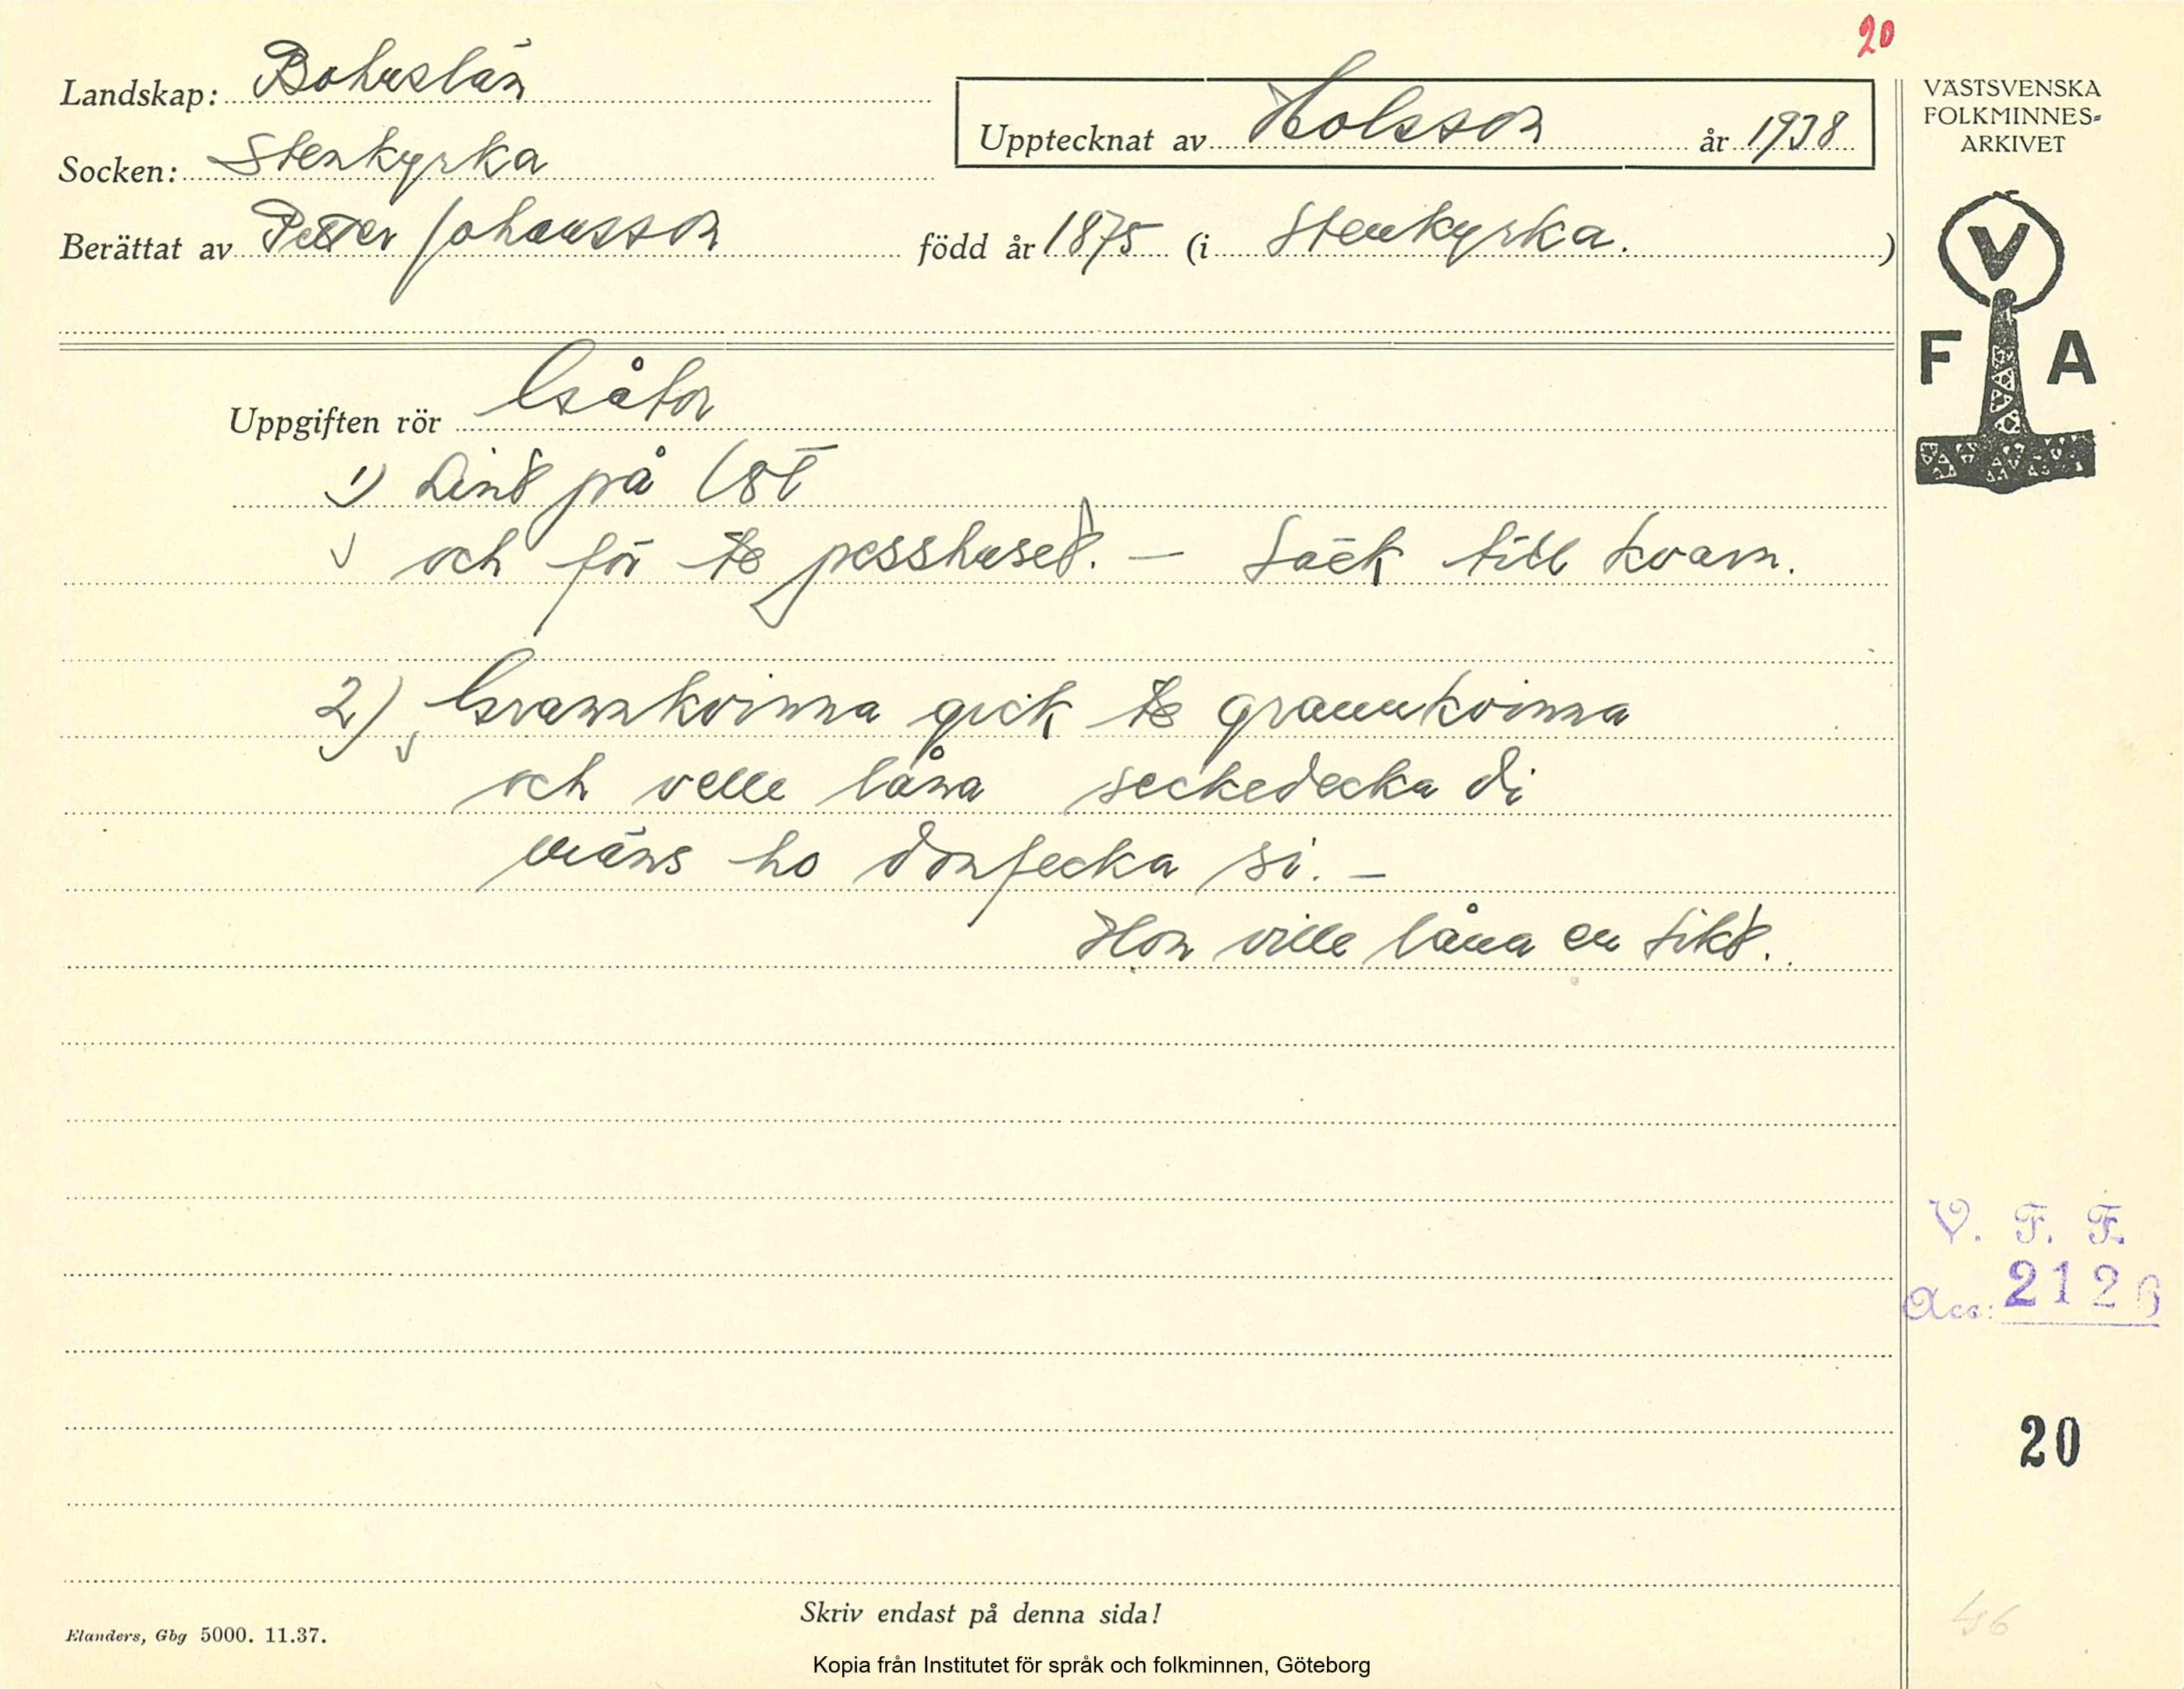 20
Landskap: Bohuslän
Upptecknat av Holsson år 1938
VÄSTSVENSKA
FOLKMINNES-
ARKIVET
Socken: Stenkyrka
Berättat av Petter Johansson född år 1875 (i Stenkyrka.)
V
F A
Uppgiften rör Gåtor
1) på
och för te pesshused. — Säck till kvarn.
2) Grannkvinna gick te grannkvinna
och velle låna seckedecka di
mäns ho donfecka si. —
Hon ville låna en sikt.
V. F. F.
Acc: 2126
20
Skriv endast på denna sida!
Elanders, Gbg 5000. 11.37.
Kopia från Institutet för språk och folkminnen, Göteborg